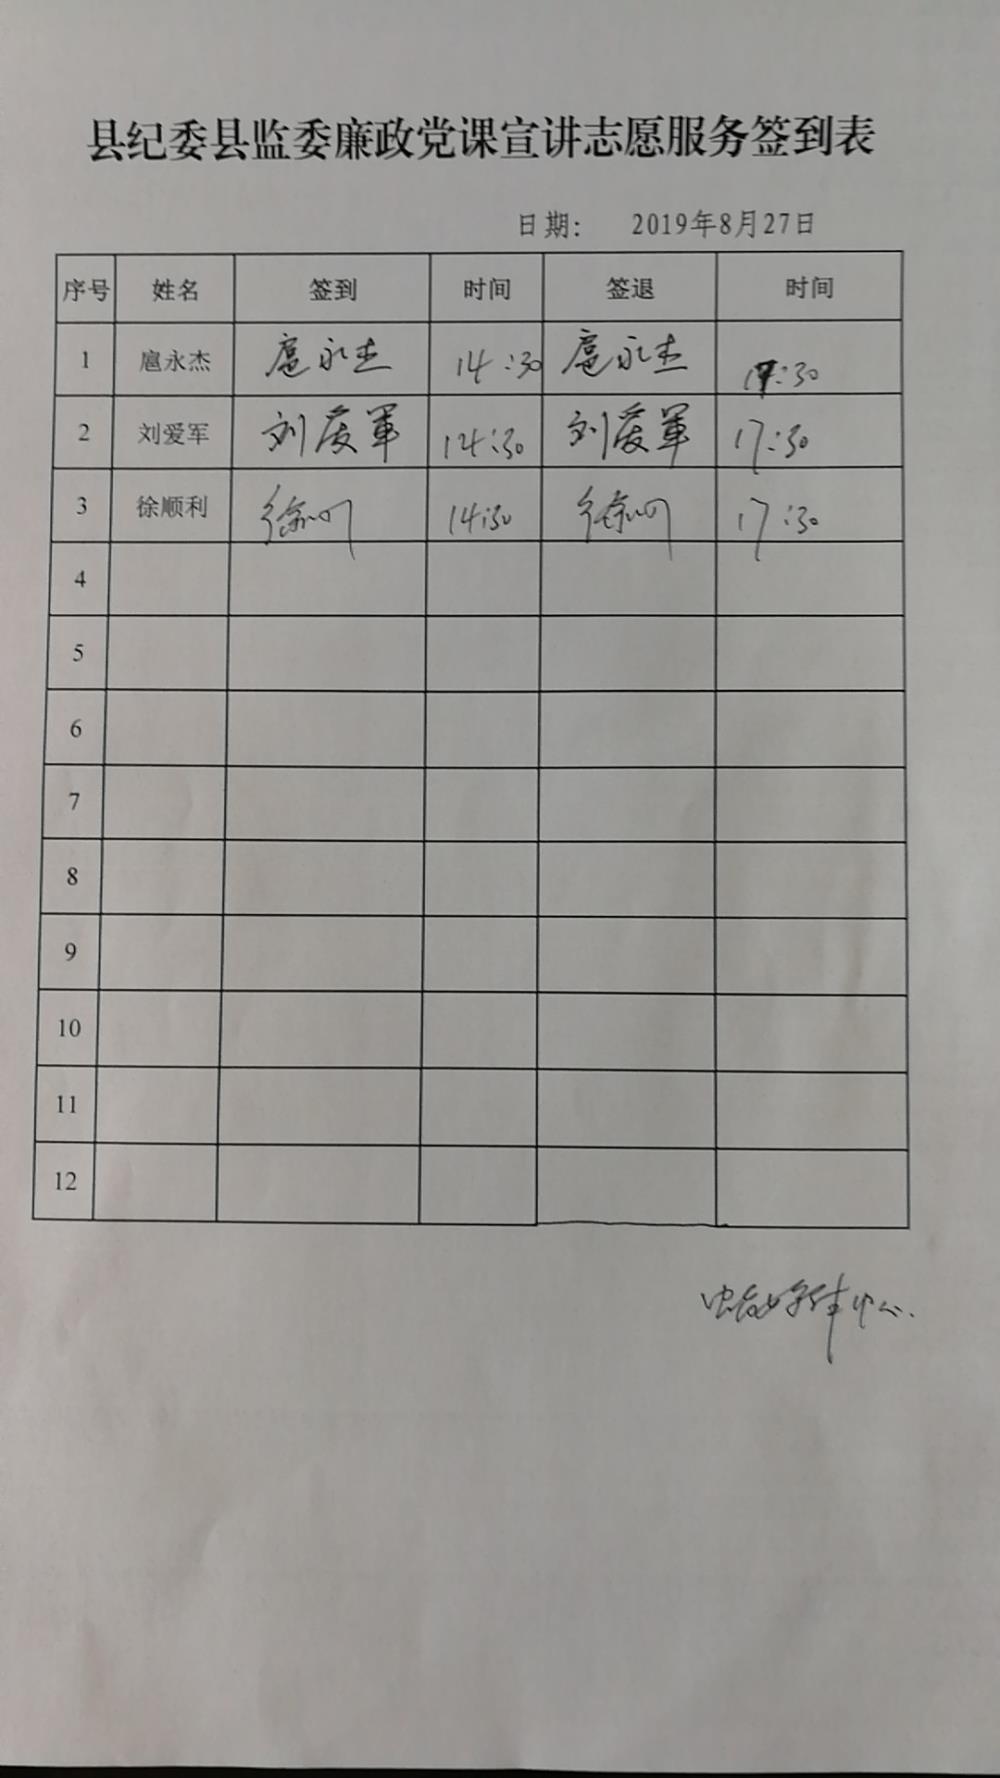 县纪委县监委廉政党课宣讲志愿服务签到表
日期: 2019年8月27日
序号 姓名 签到 时间 签退 时间
1 扈永杰 扈永杰 14:30 扈永杰 17:30
2 刘爱军 刘爱军 14:30 刘爱军 17:30
3 徐顺利 徐顺利 14:30 徐顺利 17:30
4
5
6
7
8
9
10
11
12
中心.